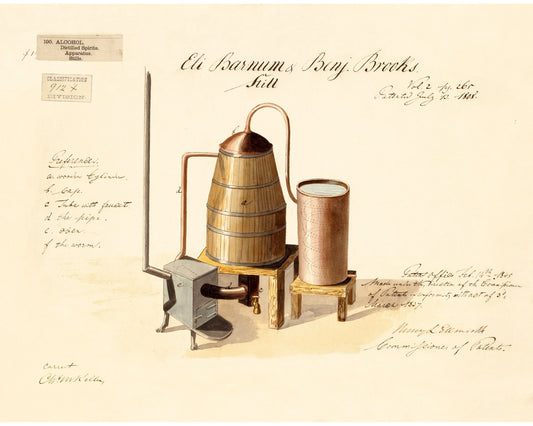 196. ALCOHOL.
Distilled Spirits.
Apparatus.
Stills.
CLASSIFICATION
912 +
DIVISION.
Eli Barnum & Benj. Brooks.
Still
Vol. 2 pg. 265
Patented July 1808.
References.
a. wooden Cylinder.
b. Cap.
c. Tube with faucet
d the pipe.
e. oven
f the worm.
a
d
Patent Office Feb. 1845
Made under the direction of the Commissioner
of Patents in conformity with act of 3d
March 1837.
Henry L Ellsworth
Commissioner of Patents.
correct